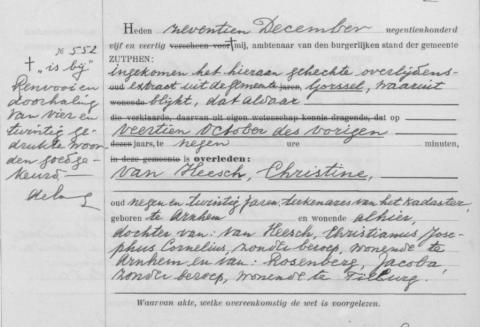 № 552
† "is bij"
Renvooi en
doorhaling
van vier en
twintig ge-
drukte woor-
den goedge-
keurd.
Heden zeventien December negentienhonderd
vijf en veertig verscheen voor † mij, ambtenaar van den burgerlijken stand der gemeente
ZUTPHEN:
ingekomen het hieraan gehechte overlijdens-
oud extract uit de gemeente jaren, Gorssel, waaruit
wonende blijkt, dat aldaar
die verklaarde, daarvan uit eigen wetenschap kennis dragende, dat op
veertien October des vorigen
dezes jaars, te negen ure minuten,
in deze gemeente is overleden:
van Heesch, Christine,
oud negen en twintig jaren, teekenares van het kadaster,
geboren te Arnhem en wonende alhier,
dochter van: van Heesch, Christianus, Jose-
phus Cornelius, zonder beroep, wonende te
Arnhem en van: Rosenberg, Jacoba,
zonder beroep, wonende te Tilburg.
Waarvan akte, welke overeenkomstig de wet is voorgelezen.